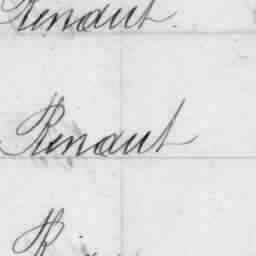 Renaut.
Renaut